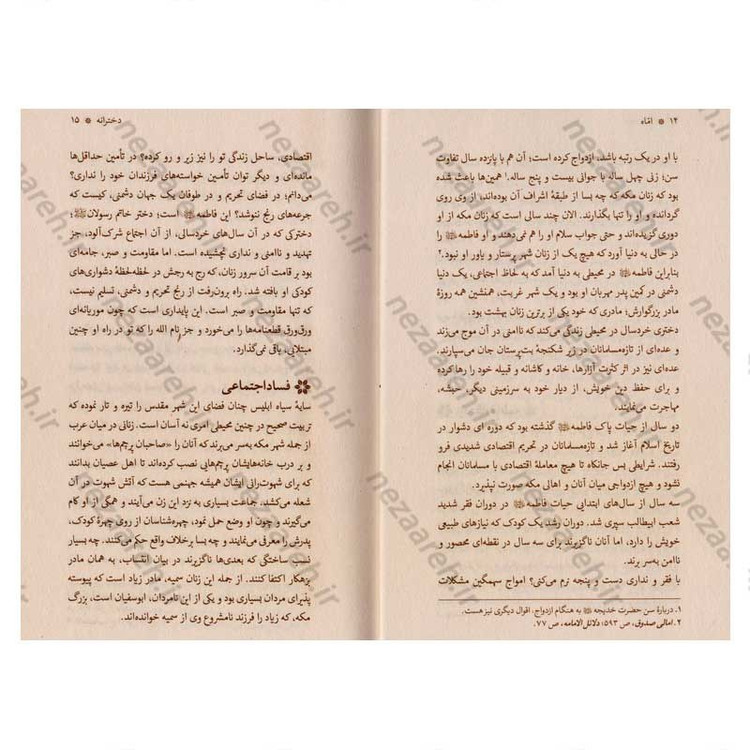 ۱۴ * امّاه
با او در یک رتبه باشد، ازدواج کرده است؛ آن هم با پانزده سال تفاوت
سن؛ زنی چهل ساله با جوانی بیست و پنج ساله.۱ همین‌ها باعث شده
که زنان مکه که چه بسا از طبقهٔ اشراف آن بوده‌اند، از وی روی
گردانده و او را تنها بگذارند. الان چند سالی است که زنان مکه از او
دوری گزیده‌اند و حتی جواب سلام او را هم نمی‌دهند و او فاطمه را
در حالی به دنیا آورد که هیچ یک از زنان شهر پرستار و یاور او نبود.۲
بنابراین فاطمه در محیطی به دنیا آمد که به لحاظ اجتماعی، یک دنیا
دشمنی در کمین پدر مهربان او بود و یک شهر غربت، همنشین همه روزهٔ
مادر بزرگوارش؛ مادری که خود یکی از برترین زنان بهشت بود.
دختری خردسال در محیطی زندگی می‌کند که ناامنی در آن موج می‌زند
و عده‌ای از تازه‌مسلمانان در زیر شکنجهٔ بت‌پرستان جان می‌سپارند.
عده‌ای نیز در اثر کثرت آزارها، خانه و کاشانه و قبیله خود را رها کرده
و برای حفظ دین خویش، از دیار خود به سرزمینی دیگر، حبشه،
مهاجرت می‌نمایند.
دو سال از حیات پاک فاطمه گذشته بود که دوره ای دشوار در
تاریخ اسلام آغاز شد و تازه‌مسلمانان در تحریم اقتصادی شدیدی فرو
رفتند. شرایطی بس جانکاه تا هیچ معاملهٔ اقتصادی با مسلمانان انجام
نشود و هیچ ازدواجی میان آنان و اهالی مکه صورت نپذیرد.
سه سال از سال‌های ابتدایی حیات فاطمه در دوران فقر شدید
شعب ابیطالب سپری شد. دوران رشد یک کودک که نیازهای طبیعی
خویش را دارد، اما آنان ناگزیرند برای سه سال در نقطه‌ای محصور و
ناامن به‌سر برند.
با فقر و نداری دست و پنجه نرم می‌کنی؟ امواج سهمگین مشکلات
۱. دربارهٔ سن حضرت خدیجه به هنگام ازدواج، اقوال دیگری نیز هست.
۲. امالی صدوق، ص ۵۹۳؛ دلائل الامامه، ص ۷۷.
دخترانه * ۱۵
اقتصادی، ساحل زندگی تو را نیز زیر و رو کرده؟ در تأمین حداقل‌ها
مانده‌ای و دیگر توان تأمین خواسته‌های فرزندان خود را نداری؟
می‌دانم؛ در فضای تحریم و در طوفان یک جهان دشمنی، کیست که
جرعه‌های رنج ننوشد؟ این فاطمه است؛ دختر خاتم رسولان؛
دخترکی که در آن سال‌های خردسالی، از آن اجتماع شرک‌آلود، جز
تهدید و ناامنی و نداری نچشیده است. اما مقاومت و صبر، جامه‌ای
بود بر قامت آن سرور زنان، که رج به رجش در لحظه‌لحظهٔ دشواری‌های
کودکی او بافته شد. راه برون‌رفت از رنج تحریم و دشمنی، تسلیم نیست،
که تنها مقاومت و صبر است. این پایداری است که چون موریانه‌ای
ورق‌ورق قطعنامه‌ها را می‌خورد و جز نام الله را که تو در راه او چنین
مبتلایی، باقی نمی‌گذارد.
فساد اجتماعی
سایهٔ سیاه ابلیس چنان فضای این شهر مقدس را تیره و تار نموده که
تربیت صحیح در چنین محیطی امری نه آسان است. زنانی در میان عرب
از جمله شهر مکه به‌سر می‌برند که آنان را «صاحبان پرچم‌ها» می‌خوانند
و بر درب خانه‌هایشان پرچم‌هایی نصب کرده‌اند تا اهل عصیان بدانند
که برای شهوت‌رانی ایشان همیشه جهنمی هست که آتش شهوت در آن
شعله می‌کشد. جماعت بسیاری به نزد این زن می‌آیند و همگی از او کام
می‌گیرند و چون او وضع حمل نمود، چهره‌شناسان از روی چهرهٔ کودک،
پدرش را معرفی می‌نمایند و چه بسا برخلاف واقع حکم می‌کنند. چه بسیار
نسب ساختگی که بعدی‌ها ناگزیرند در بیان انتساب، به همان مادر
بزهکار اکتفا کنند. از جمله این زنان سمیه، مادر زیاد است که پیوسته
پذیرای مردان بسیاری بود و یکی از این نامردان، ابوسفیان است، بزرگ
مکه، که زیاد را فرزند نامشروع وی از سمیه خوانده‌اند.
nezaareh.ir